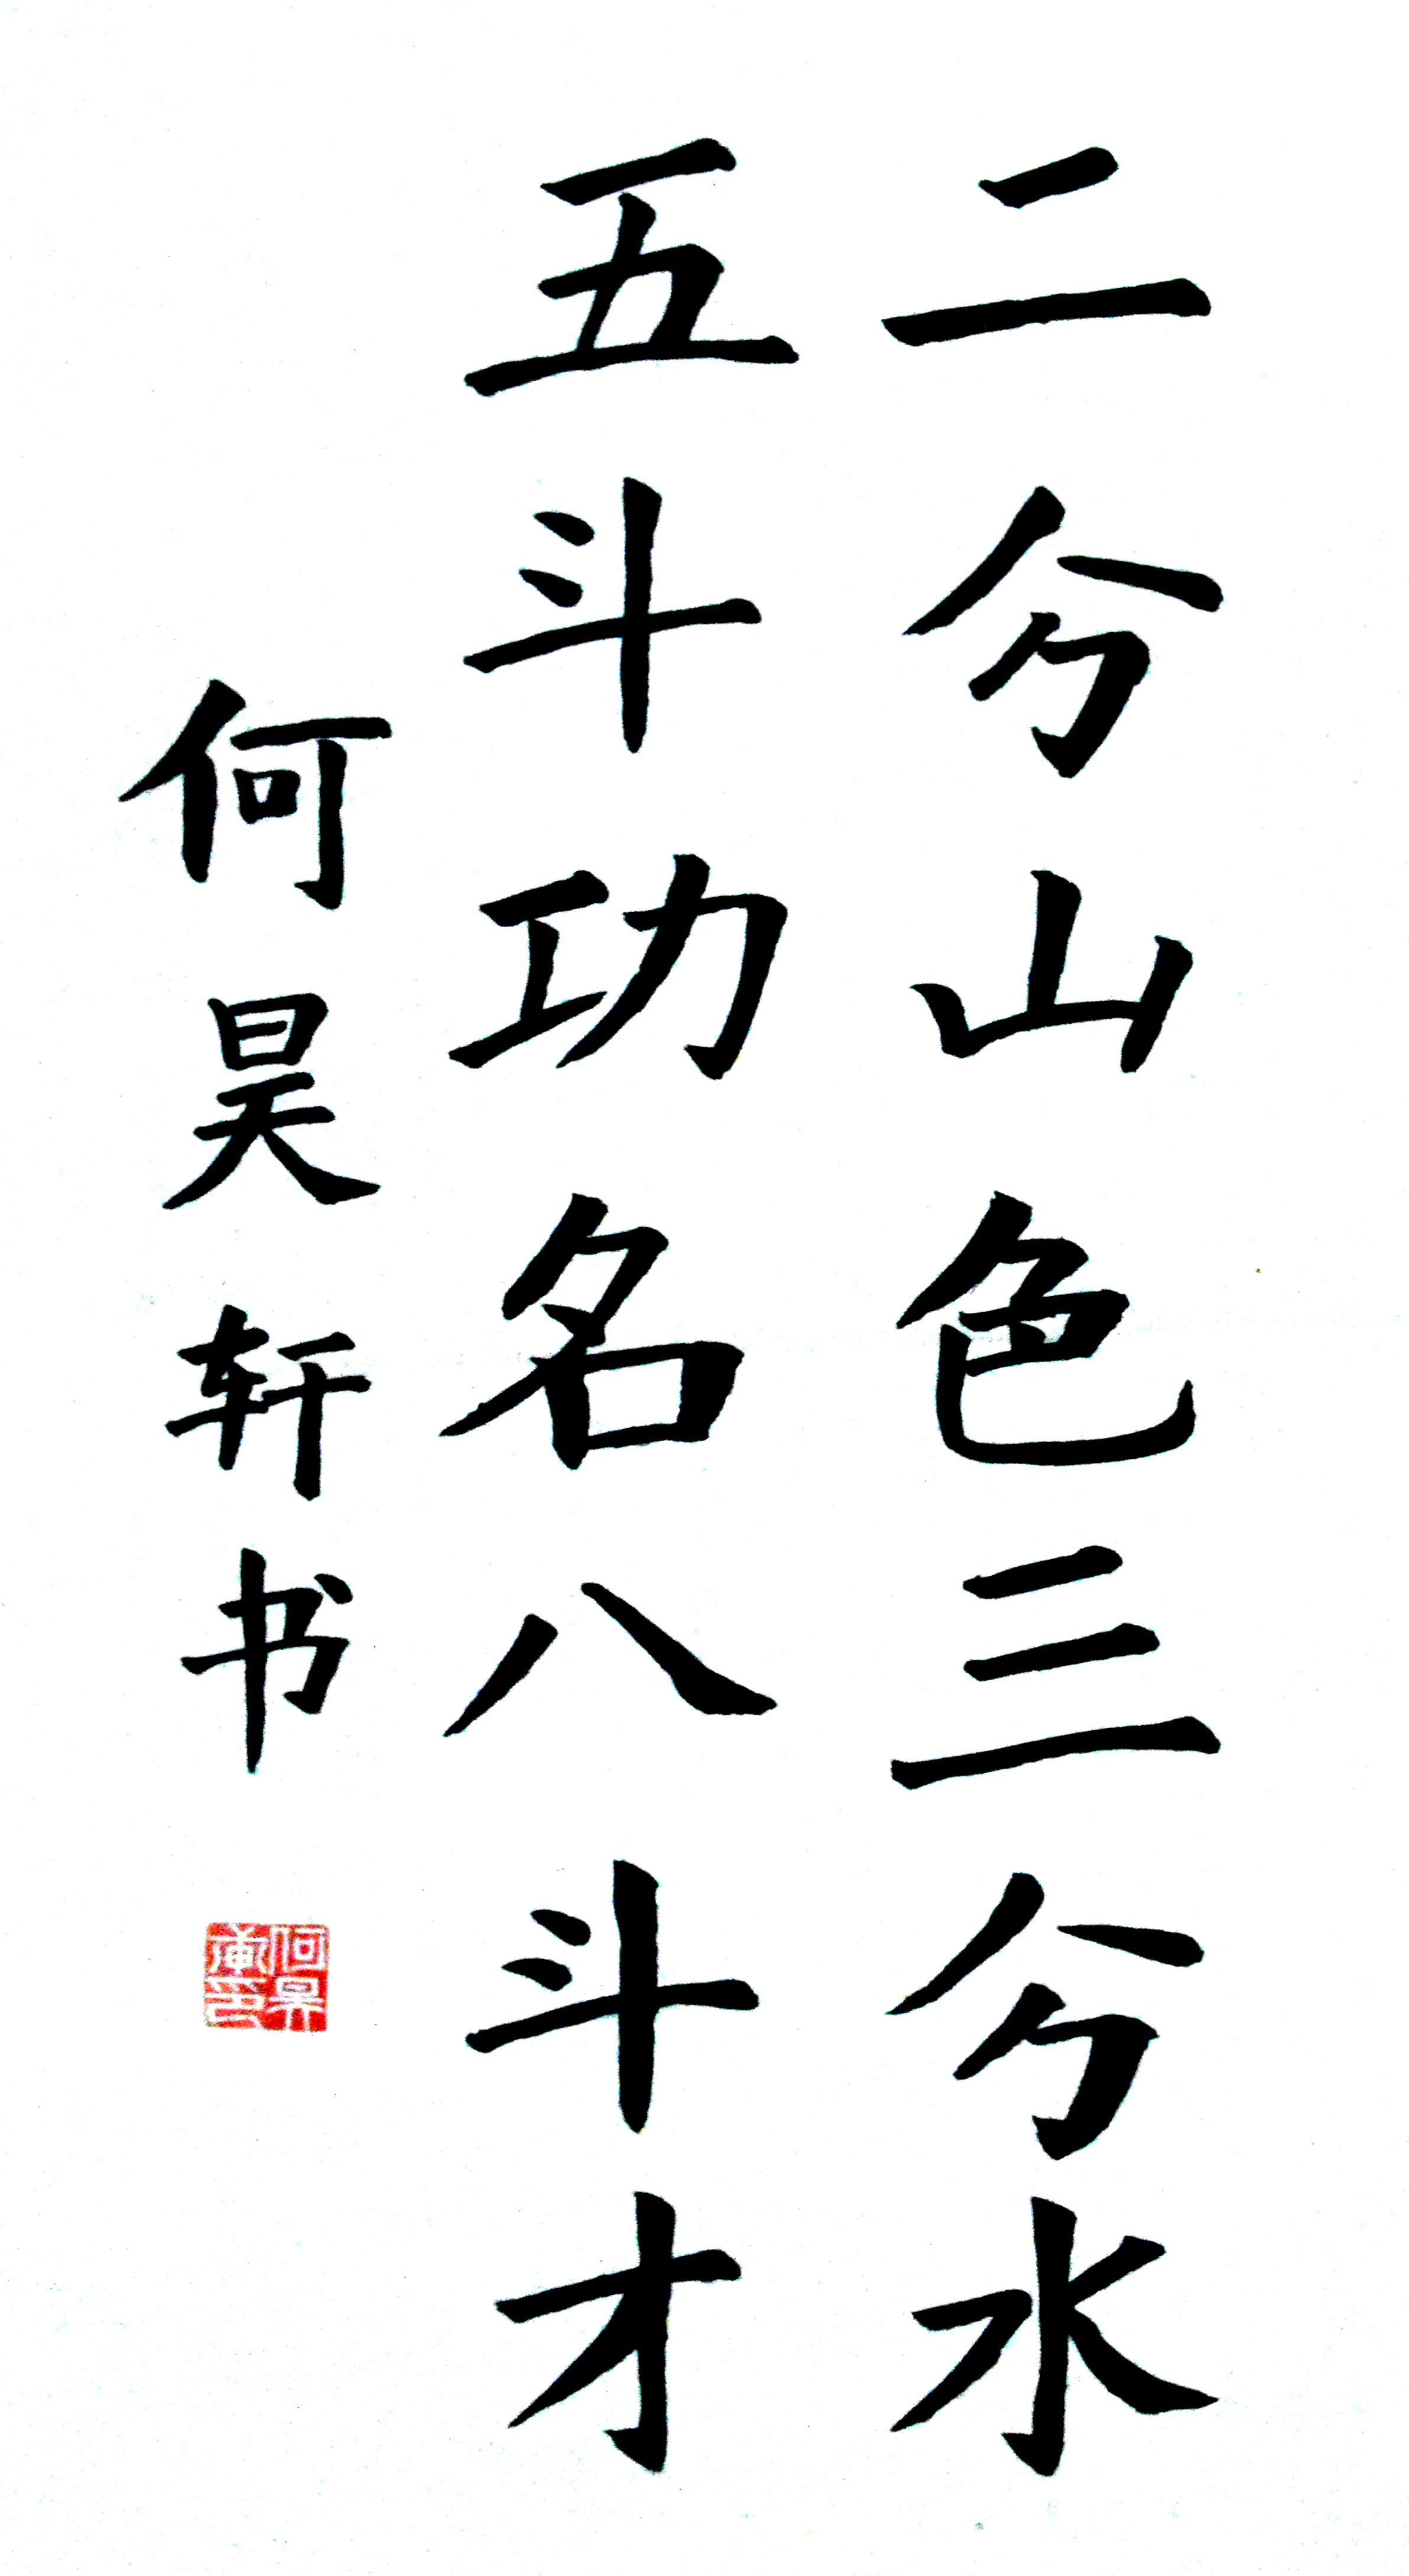 二分山色三分水
五斗功名八斗才
何昊轩书
何昊轩印